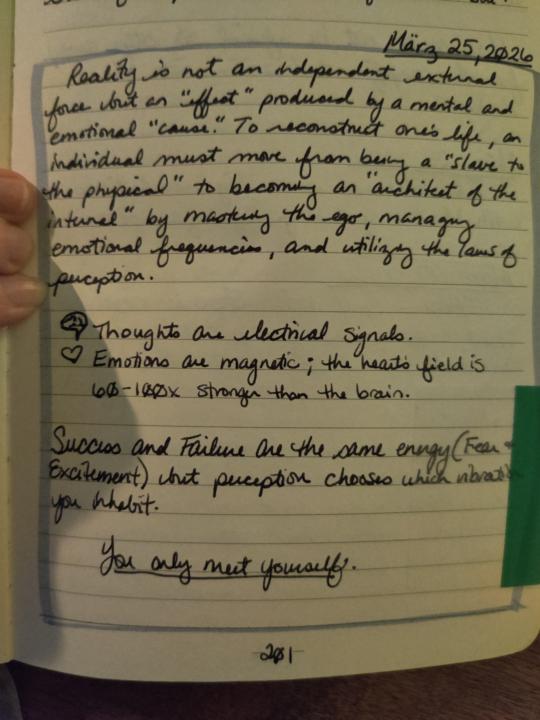 März 25, 2026
Reality is not an independent external
force but an "effect" produced by a mental and
emotional "cause." To reconstruct one's life, an
individual must move from being a "slave to
the physical" to becoming an "architect of the
internal" by mastering the ego, managing
emotional frequencies, and utilizing the laws of
perception.
Thoughts are electrical signals.
Emotions are magnetic; the heart's field is
60-100x stronger than the brain.
Success and Failure are the same energy (Fear +
Excitement) but perception chooses which vibration
you inhabit.
You only meet yourself.
201